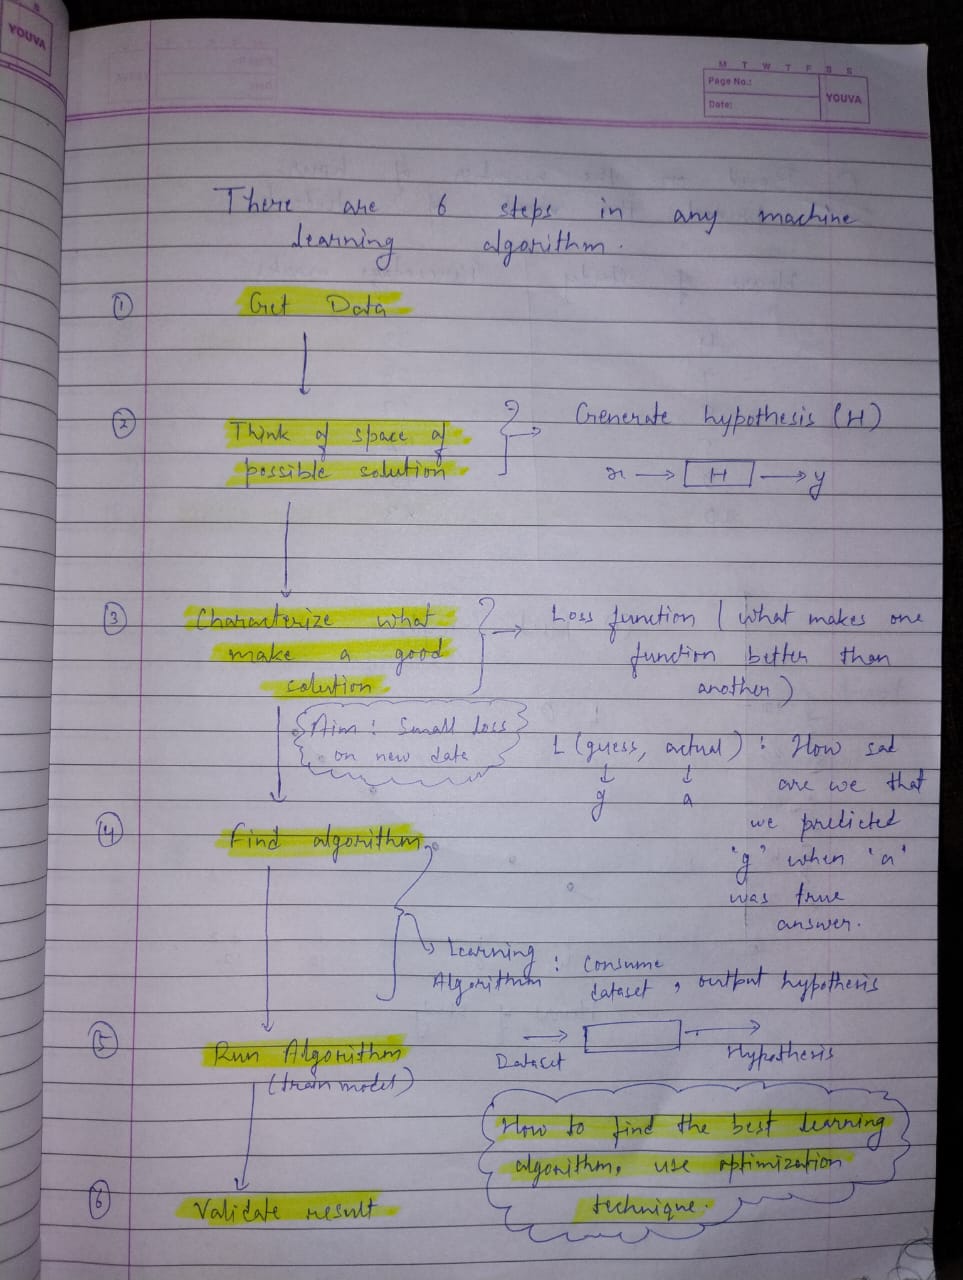 YOUVA
M T W T F S S
Page No.:
Date:
YOUVA
There are 6 steps in any machine
learning algorithm.
① Get Data
② Think of space of
possible solution
Generate hypothesis (H)
x → H → y
③ Characterize what
make a good
solution
Loss function ( what makes one
function better than
another)
Aim : Small loss
on new data
L (guess, actual) : How sad
g a are we that
we predicted
'g' when 'a'
was true
answer.
④ Find algorithm
Learning : Consume
Algorithm dataset, output hypothesis
⑤ Run Algorithm
(train model)
Dataset Hypothesis
How to find the best learning
algorithm, use optimization
technique.
⑥ Validate result